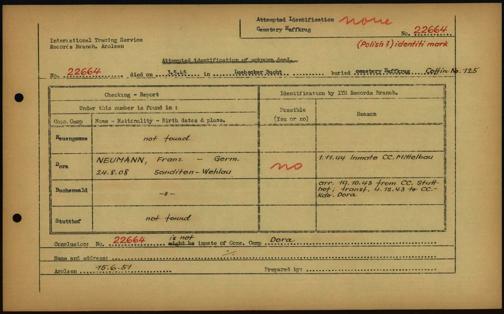 Attempted Identification none
Cemetery Haffkrug No. 22664
International Tracing Service
Records Branch, Arolsen
(Polish?) identiti mark
Attempted identification of unknown dead.
No. 22664 died on 3.5.45 in Luebecker Bucht buried cemetery Haffkrug Coffin No. 125
Checking - Report
Identification by ITS Records Branch.
Under this number is found in :
Possible (Yes or no)
Reason
Conc.Camp Name - Nationality - Birth dates & place.
Neuengamme not found
Dora NEUMANN, Franz - Germ. no 1.11.44 inmate CC. Mittelbau
24.8.08 Sanditten-Wehlau
Buchenwald -"- arr. 19.10.43 from CC. Stutt-
hof, transf. 4.12.43 to CC.-
Kdo. Dora.
Stutthof not found
is not
Conclusion: No. 22664 might be inmate of Conc. Camp Dora
Name and address:
Arolsen 15.6.51 Prepared by: